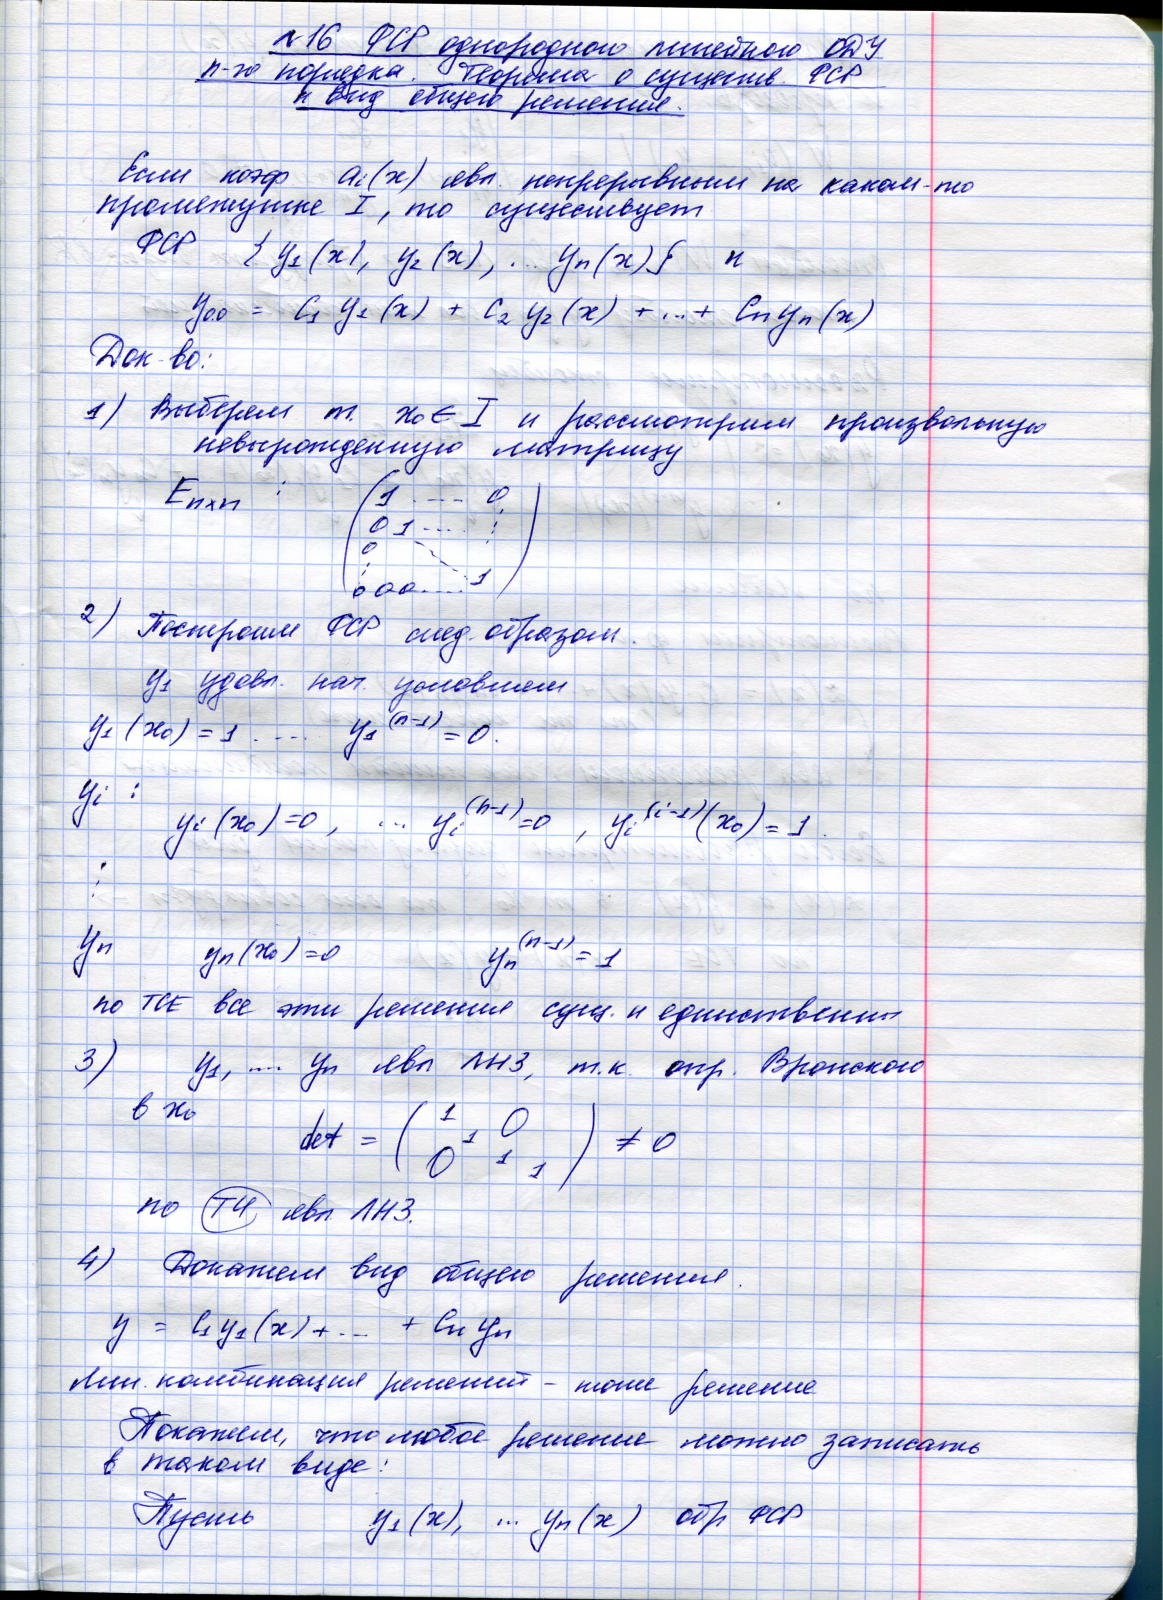 №16 ФСР однородного линейного ОДУ
n-го порядка. Теорема о существ. ФСР
и вид общего решения.
Если коэф a_i(x) явл. непрерывными на каком-то
промежутке I, то существует
ФСР { y_1(x), y_2(x), ... y_n(x) } и
y_{o.o} = C_1 y_1(x) + C_2 y_2(x) + ... + C_n y_n(x)
Док-во:
1) Выберем т. x_0 ∈ I и рассмотрим произвольную
невырожденную матрицу
E_{n×n} :
( 1 .... 0
0 1 ... ⋮
0
⋮
0 0 0 ..... 1 )
2) Построим ФСР след. образом.
y_1 удовл. нач. условиям
y_1(x_0) = 1 ..... y_1^{(n-1)} = 0.
y_i :
y_i(x_0) = 0, ... y_i^{(n-1)} = 0, y_i^{(i-1)}(x_0) = 1.
⋮
y_n y_n(x_0) = 0 y_n^{(n-1)} = 1
по ТСЕ все эти решения сущ. и единственны
3) y_1, .... y_n явл ЛНЗ, т.к. опр. Вронского
в x_0
det = ( 1 0
1
0 1 1 ) ≠ 0
по ТЧ явл ЛНЗ.
4) Докажем вид общего решения.
y = C_1 y_1(x) + ... + C_n y_n
Лин. комбинация решений – тоже решение
Покажем, что любое решение можно записать
в таком виде:
Пусть y_1(x), ... y_n(x) обр ФСР